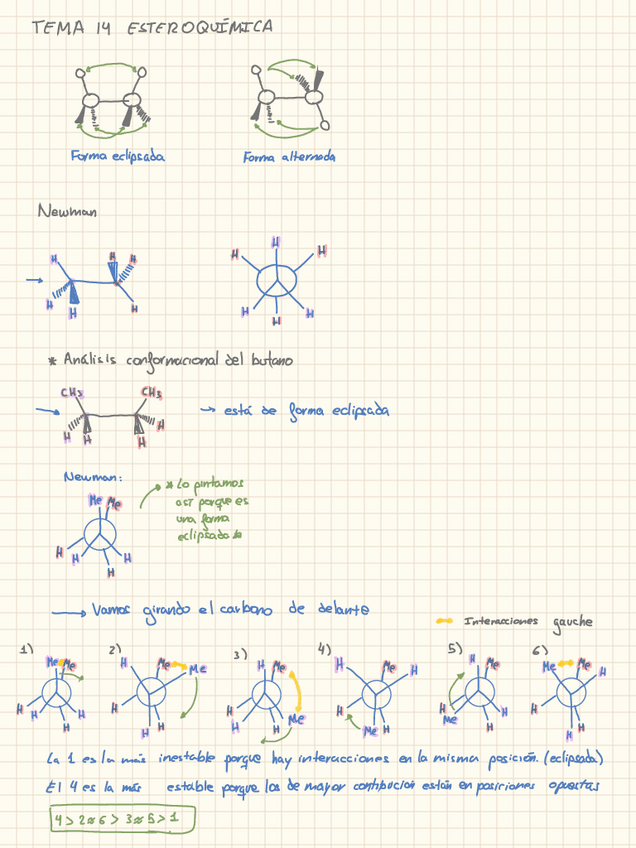 TEMA 14 ESTEROQUÍMICA
Forma eclipsada
Forma alternada
Newman
H H H
H H H
H
H H
H H
H
* Análisis conformacional del butano
CH3 CH3
H H H H
→ está de forma eclipsada
Newman:
Me Me
H H H H
* Lo pintamos
así porque es
una forma
eclipsada *
→ Vamos girando el carbono de delante
Interacciones gauche
1) 2) 3) 4) 5) 6)
Me Me H Me Me H Me H Me H H Me Me Me H
H H H H H H H H H Me H Me H H Me H H H H H H
La 1 es la más inestable porque hay interacciones en la misma posición. (eclipsada)
El 4 es la más estable porque los de mayor contibución están en posiciones opuestas
4 > 2 ≈ 6 > 3 ≈ 5 > 1